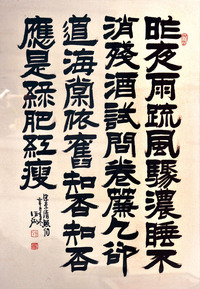 昨夜雨疏風驟濃睡不
消殘酒試問卷簾人卻
道海棠依舊知否知否
應是綠肥紅瘦
李清照詞